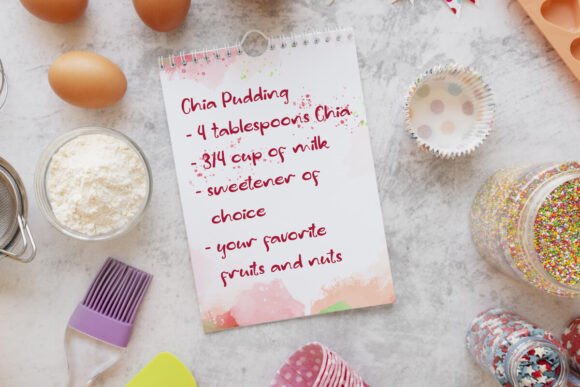 Chia Pudding
- 4 tablespoons Chia
- 3/4 cup of milk
- sweetener of
choice
- your favorite
fruits and nuts